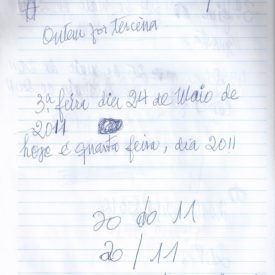 Ontem foi terceira
3ª feira dia 24 de Maio de
2011
hoje é quarta feira, dia 2011
20 do 11
20/11